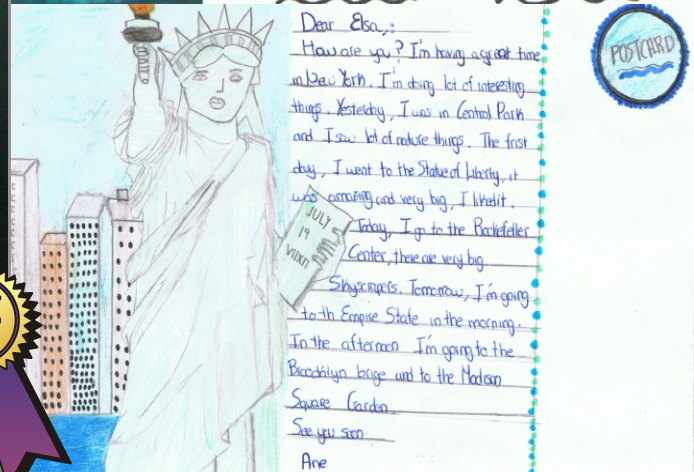 Dear Elsa,:
How are you? I'm having a great time
in New York. I'm doing lot of interesting
things. Yesterday, I was in Central Park
and I saw lot of nature things. The frist
day, I went to the Statue of Liberty, it
was amazing and very big, I liked it.
Today, I go to the Rockefeller
Center, there are very big
Skyscrapers. Tomorrow, I'm going
to th Empire State in the morning.
In the afternoon I'm going to the
Broocklyn brige and to the Madison
Square Garden.
See you soon
Ane
JULY
19
POSTCARD